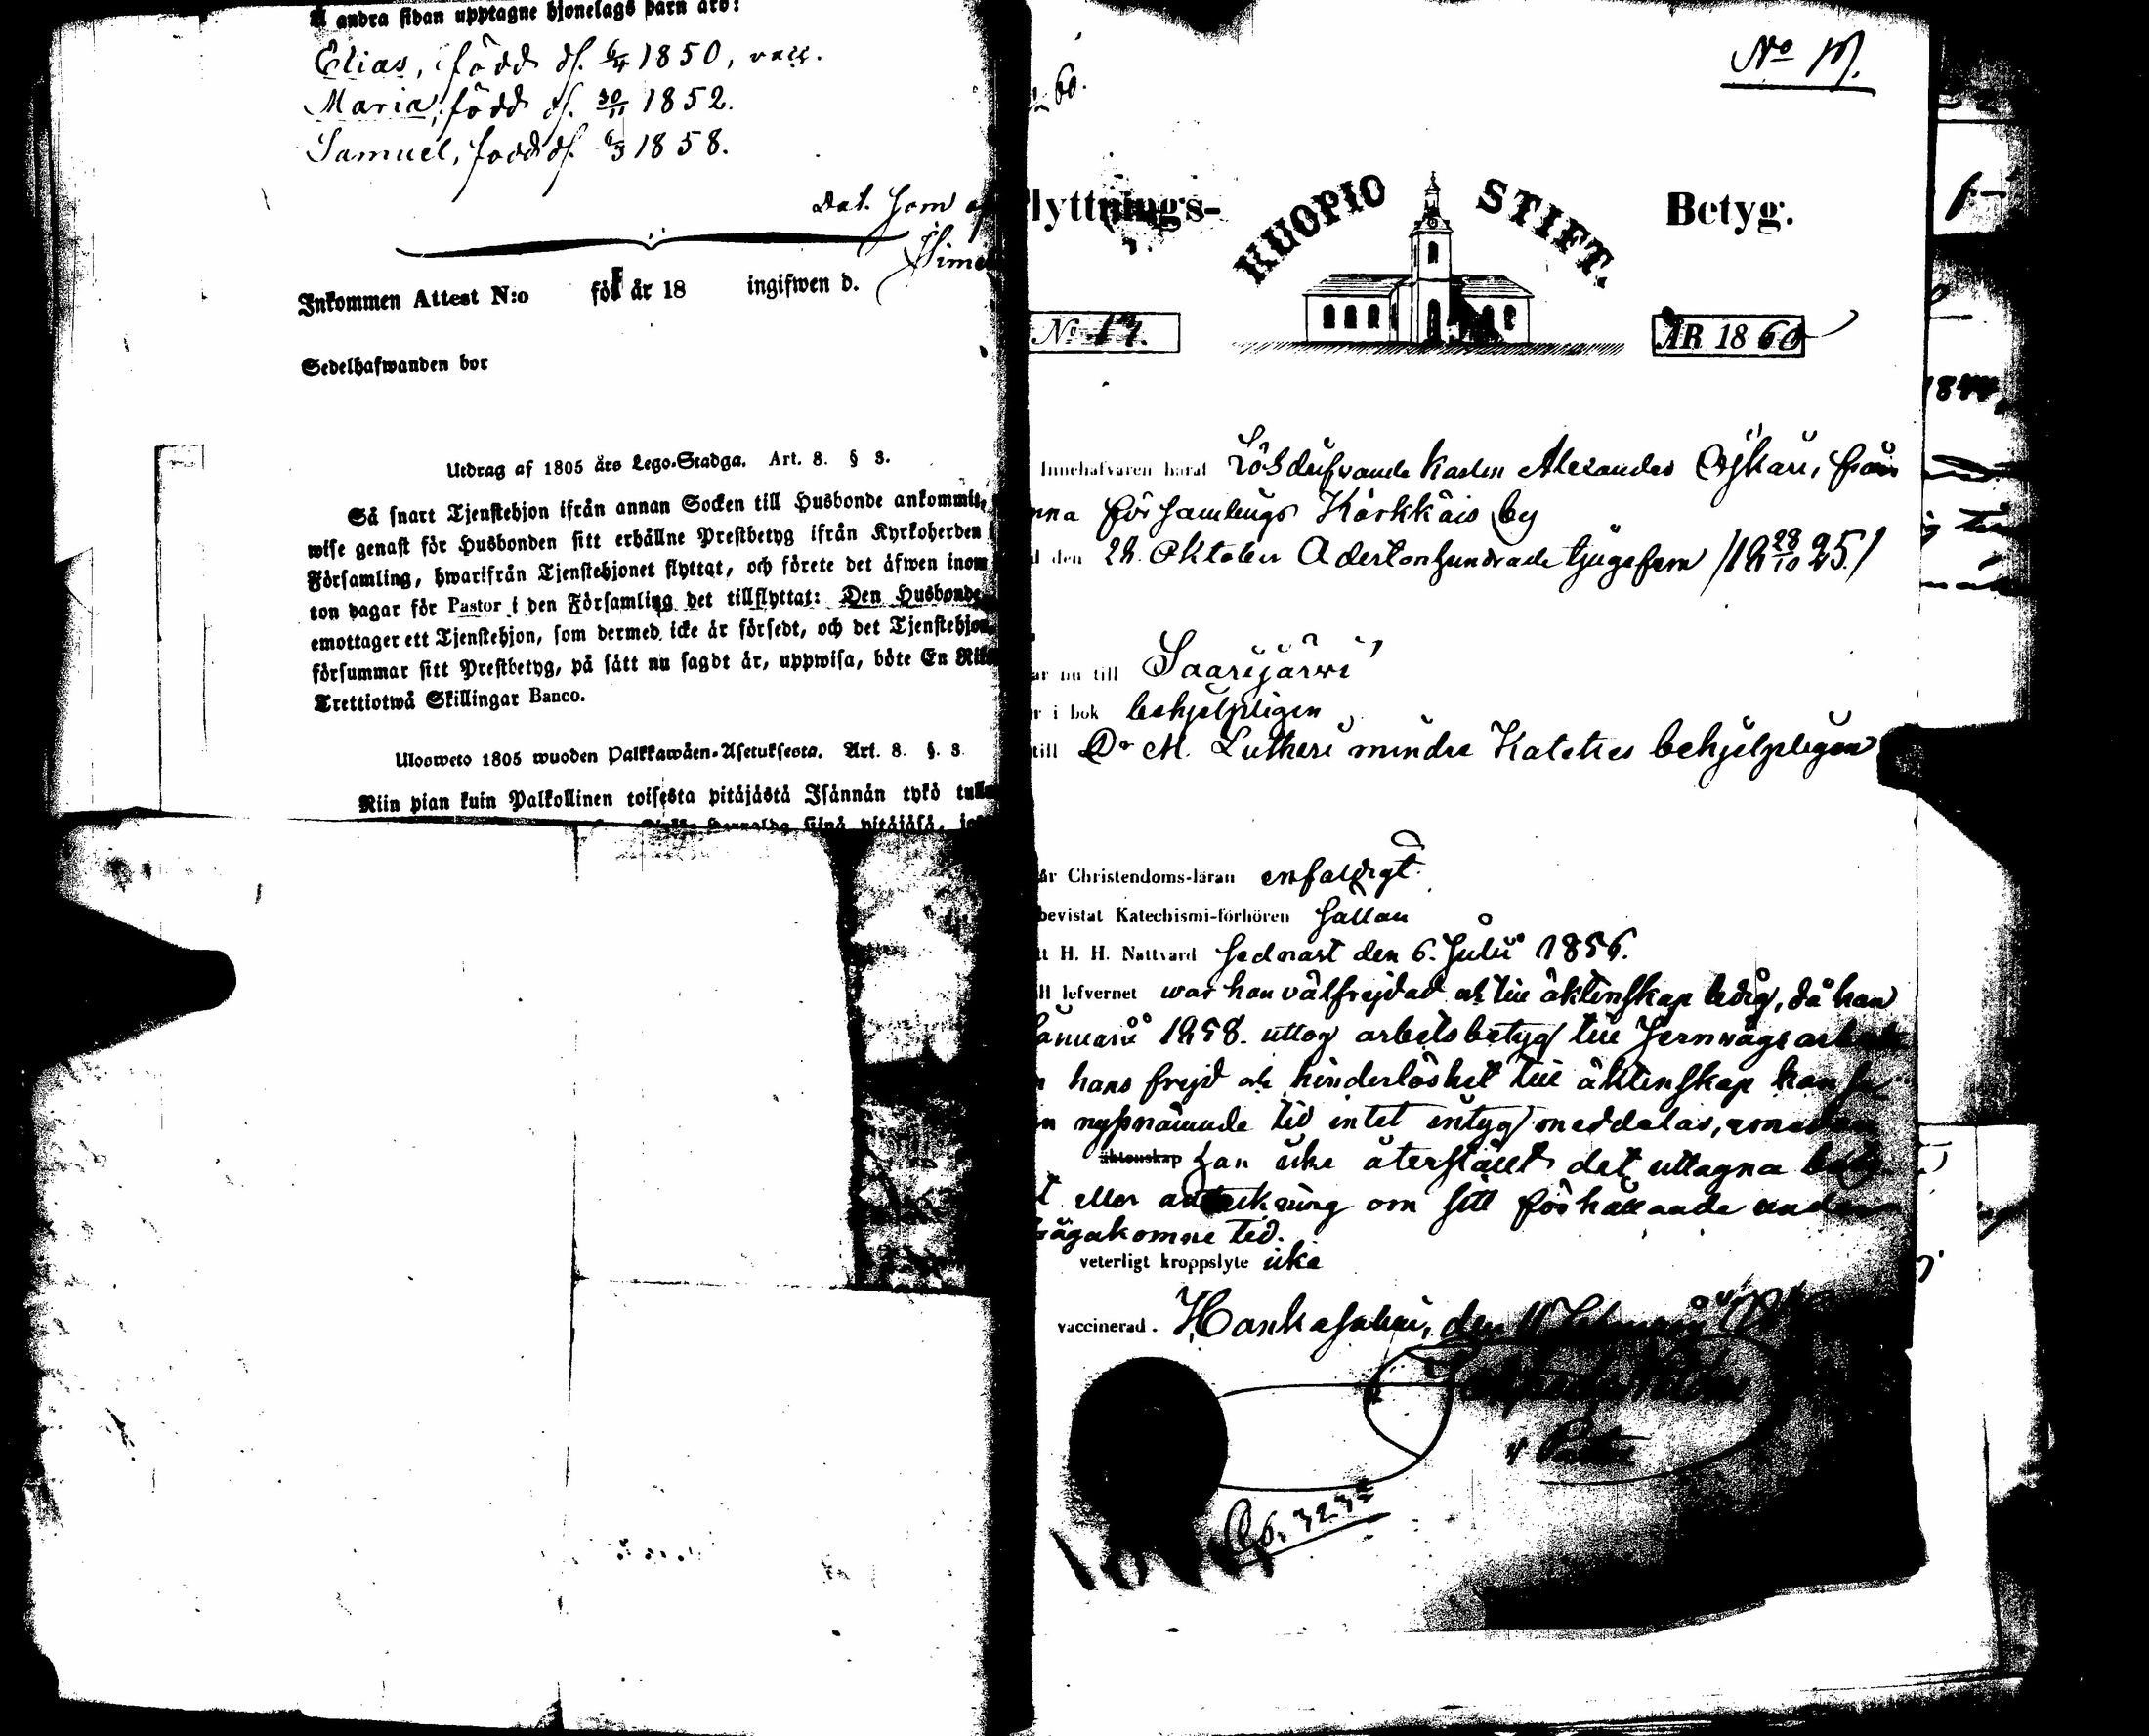 å andra sidan upptagne hjonelags barn äro:
Elias, född d. 6/4 1850, vacc.
Maria, född d. 30/11 1852.
Samuel, född d. 6/3 1858.
Dat. som
Inkommen Attest N:o för år 18 ingifwen d.
Sedelhafwanden bor
Utdrag af 1805 års Lego-Stadga. Art. 8. § 3.
Så snart Tjenstehjon ifrån annan Socken till Husbonde ankommit,
wise genast för Husbonden sitt erhållne Prestbetyg ifrån Kyrkoherden
Församling, hwarifrån Tjenstehjonet flyttat, och förete det äfwen inom
ton dagar för Pastor i den Församling det tillflyttat: Den Husbonde,
emottager ett Tjenstehjon, som dermed icke är försedt, och det Tjenstehjon
försummar sitt Prestbetyg, på sätt nu sagdt är, uppwisa, böte En
Trettiotwå Skillingar Banco.
Ulosweto 1805 wuoden Palkkawäen-Asetuksesta. Art. 8. §. 3.
Niin pian kuin Palkollinen toisesta pitäjästä Isännän tykö
No 17.
60.
lyttnings- KUOPIO STIFT. Betyg.
No 17. ÅR 1860
Innehafvaren häraf Lösdrifvande Karlen Alexander från
nna församlings Kärkkäis by
den 28. Oktober Adertonhundrade tjugefem /18 28/10 25./
ar nu till Saarijärwi
r i bok behjelpligen
till Dr M. Lutheri mindre Kateches behjelpligen
år Christendoms-läran enfaldigt.
bevistat Katechismi-förhören sällan
tt H. H. Nattvard sednast den 6. Julii 1856.
ll lefvernet war han välfrejdad och till äktenskap ledig, då han
Januarii 1858. uttog arbetsbetyg till Jernvägsarbete
hans frejd och hinderlöshet till äktenskap kan
n nyssnämnde tid intet intyg meddelas, emedan
äktenskap han icke återställt det uttagna
t eller anteckning om sitt förhållande under
frågakomne tid.
veterligt kroppslyte icke
vaccinerad. Hankasalmi, den 11 Februarii
v Pastor